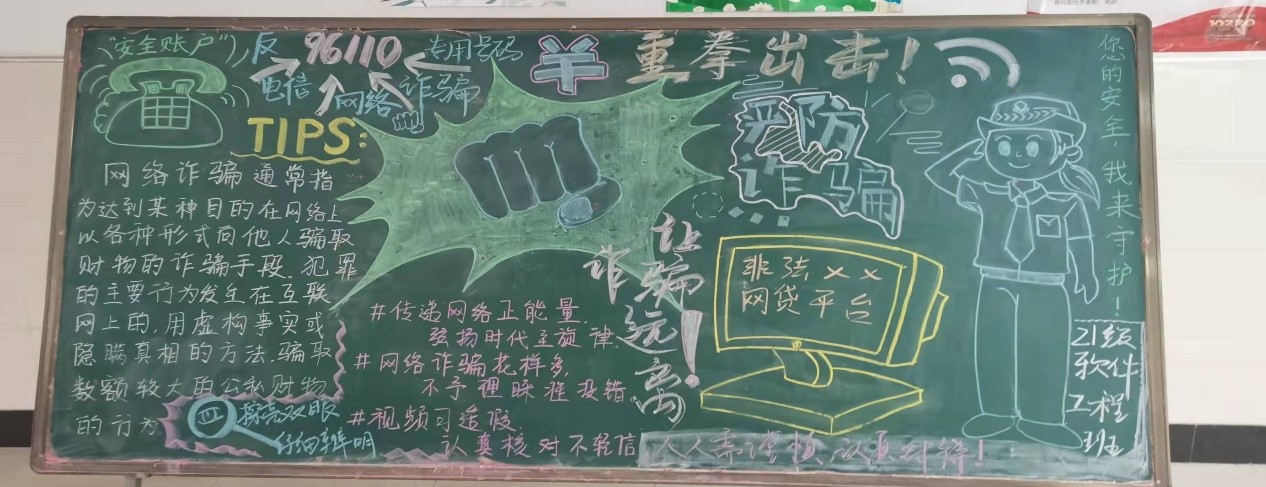 "安全账户"
反
96110
专用号码
电信
网络诈骗
¥重拳出击!
TIPS:
网络诈骗通常指
为达到某种目的在网络上
以各种形式向他人骗取
财物的诈骗手段.犯罪
的主要行为发生在互联
网上的,用虚构事实或
隐瞒真相的方法.骗取
数额较大的公私财物
的行为
擦亮双眼
仔细辨明
#传递网络正能量,
弘扬时代主旋律.
#网络诈骗花样多,
不予理睬准没错.
#视频可造假,
认真核对不轻信
人人需谨慎
让诈骗远离!
严防
诈骗
非法××
网贷平台
您的安全,我来守护!
21级
软件
工程
班